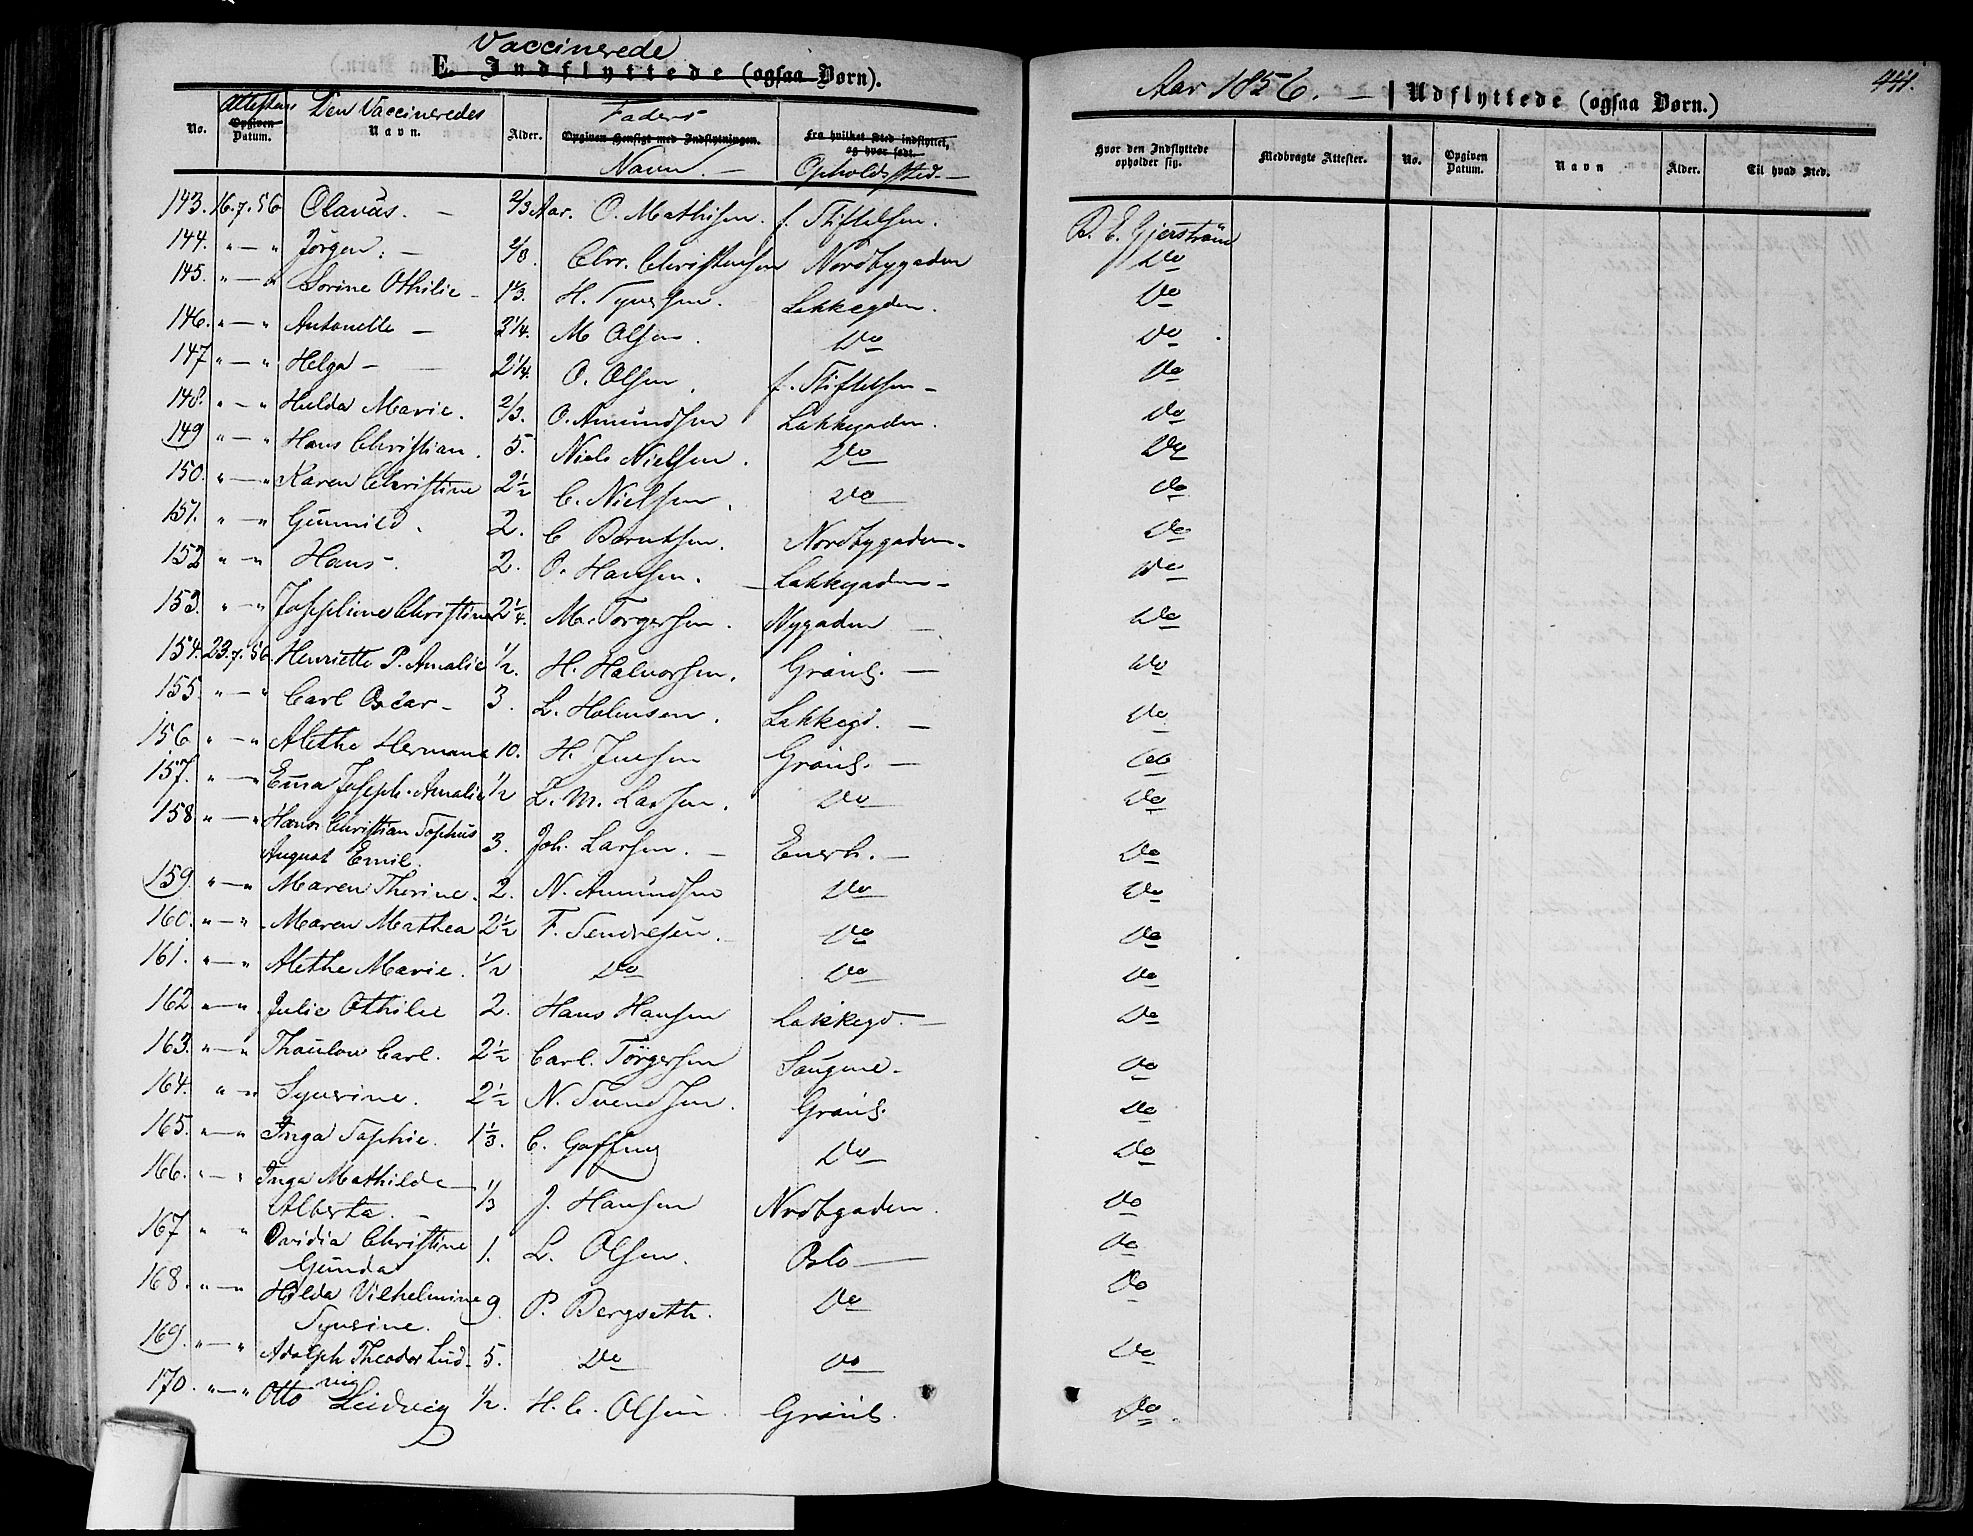 Vaccinerede
E. Indflyttede (ogsaa Børn).
Aar 1856. —
Udflyttede (ogsaa Børn.)
441.
No. Attestens Opgiven Datum. Den Vaccineredes Navn. Alder. Faders Opgiven Hensigt med Indflytningen. Navn. — Fra hvilket Sted indflyttet, og hvor født. Opholdssted. —
Hvor den Indflyttede opholder sig. Medbragte Attester. No. Opgiven Datum. Navn Alder. Til hvad Sted.
143. 16.7.56 Olavus. — 2/3 Aar. O. Mathisen. f. Stiftelsen. B. E. Gjerstrøm
144. " — " Jørgen. — Chr. Christensen Nordbygaden Do
145. " — " Sorine Othilie — 1 1/3. H. Syversen. Lakkegden. Do
146. " — " Antonette — 3 1/4. M Olsen. Do Do
147 " — " Helga — 2 1/4. O. Olsen. f. Stiftelsen — Do
148. " — " Hulda Marie. 2/3. O. Amundsen Lakkegaden. Do
149 " — " Hans Christian. 5. Niels Nielsen. Do Do
150. " — " Karen Christine 2 1/2 C. Nielsen. Do Do
151. " — " Gunnild. 2. C Berntsen. Nordbygaden — Do
152 " — " Hans — 2. O. Hansen. — Lakkegaden — Do
153. " — " Josephine Christine 2 1/4. M. Torgersen. Nygaden — Do
154. 23.7.56. Henriette P. Amalie 1/2. H. Halvorsen. Grønl. — Do
155. " — " Carl Oscar — 3. L. Halvorsen. Lakkegd. — Do
156 " — " Alethe Hermana 10. H. Jensen Grønl. — Do
157. " — " Ema Joseph. Amalie 1/2 L. M. Larsen. Do Do
158 " — " Hans Christian Sophus 3. Joh. Larsen. — Enerh. — Do
August Emil.
159. " — " Maren Therine. 2. N. Amundsen Do Do
160. " — " Maren Mathea 2 1/2 F. Do Do
161. " — " Alethe Marie. 1/2 Do Do Do
162 " — " Julie Othilie 2. Hans Hansen Lakkegd. — Do
163. " — " Thaulow Carl. 2 1/2 Carl. Torgersen Saugene — Do
164. " — " Syverine. 2 1/2 N. Svendsen. Grønl. Do
165. " — " Inga Sophie. 1 1/3. C. Do Do
166. " — " Inga Mathilde 1/3 J. Hansen Nrdbgaden. Do
Alberta. —
167. " — " Ovidia Christine 1. L. Olsen. Oslo — Do
Gunda
168. " — " Hilda Vilhelmine 9. P. Bergseth. Do Do
Syverine.
169. " — " Adolph Theodor Lud- 5. Do Do Do
vig
170. " — " Otto Ludvig 1/2. H. C. Olsen. Grønl. Do